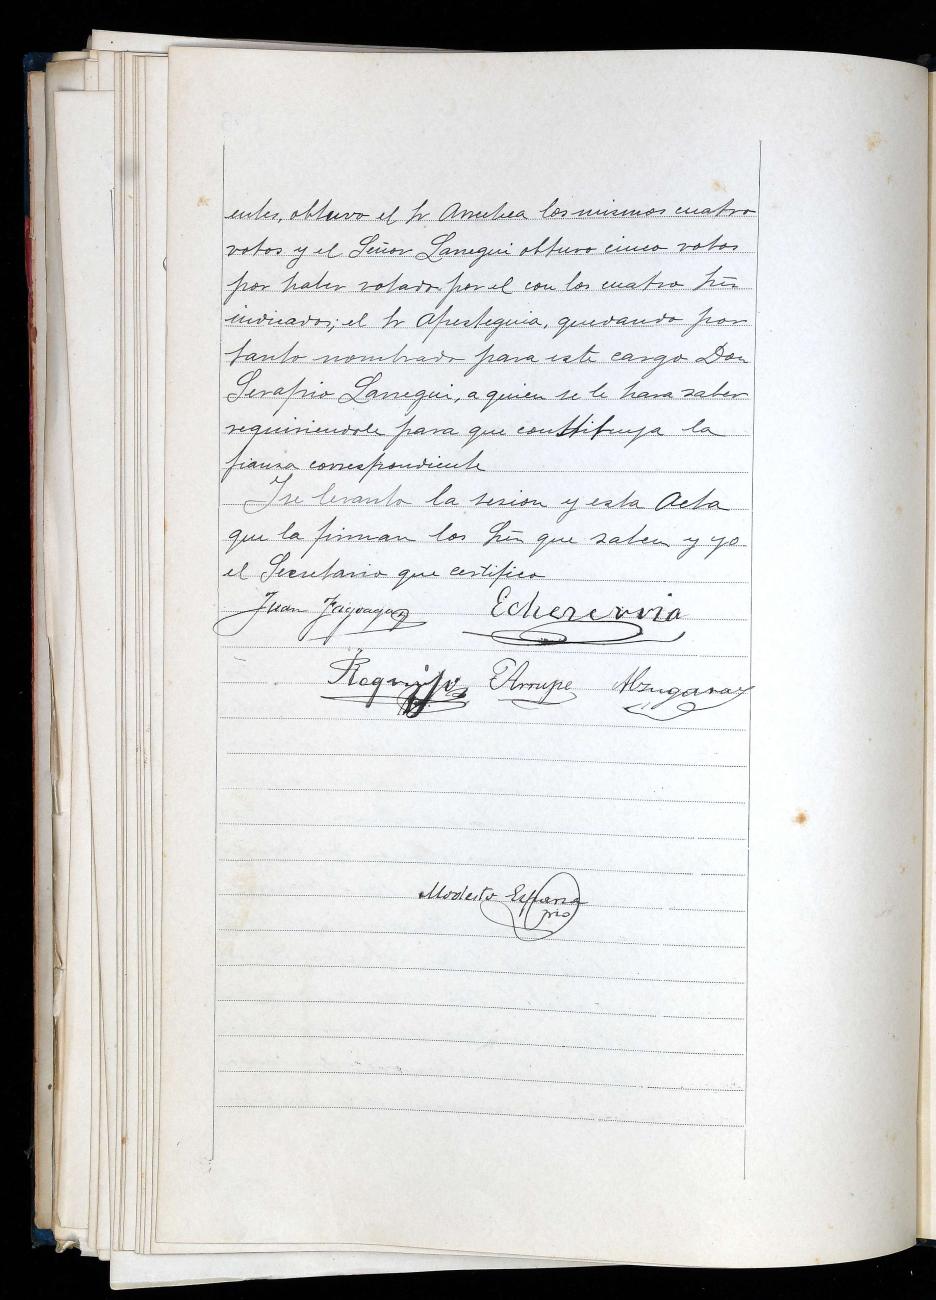 entes, obtuvo el Sr Arrechea los mismos cuatro
votos y el Señor Larregui obtuvo cinco votos
por haber votado por el con los cuatro Sres
indicados; el Sr Apesteguia, quedando por
tanto nombrado para este cargo Don
Serapio Larregui, a quien se le hara saber
requiriendole para que constituya la
fianza correspondiente
Y se levanto la sesion y esta Acta
que la firman los Sres que saben y yo
el Secretario que certifico
Juan Fagoaga
Echeverria
Arrupe Alzugaray
Modesto Esparza